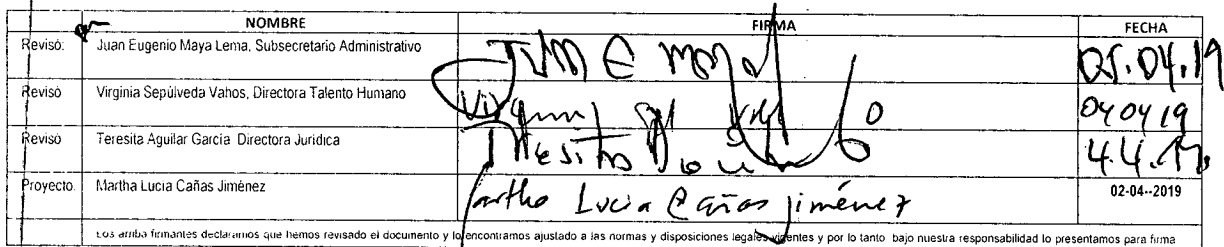 NOMBRE FIRMA FECHA
Revisó: Juan Eugenio Maya Lema, Subsecretario Administrativo Juan E Maya 05.04.19
Revisó Virginia Sepúlveda Vahos, Directora Talento Humano 04 04 19
Revisó Teresita Aguilar García Directora Jurídica Teresita 4.4.19
Proyecto: Martha Lucia Cañas Jiménez Martha Lucia Cañas Jiménez 02-04--2019
Los arriba firmantes declaramos que hemos revisado el documento y lo encontramos ajustado a las normas y disposiciones legales vigentes y por lo tanto bajo nuestra responsabilidad lo presentamos para firma